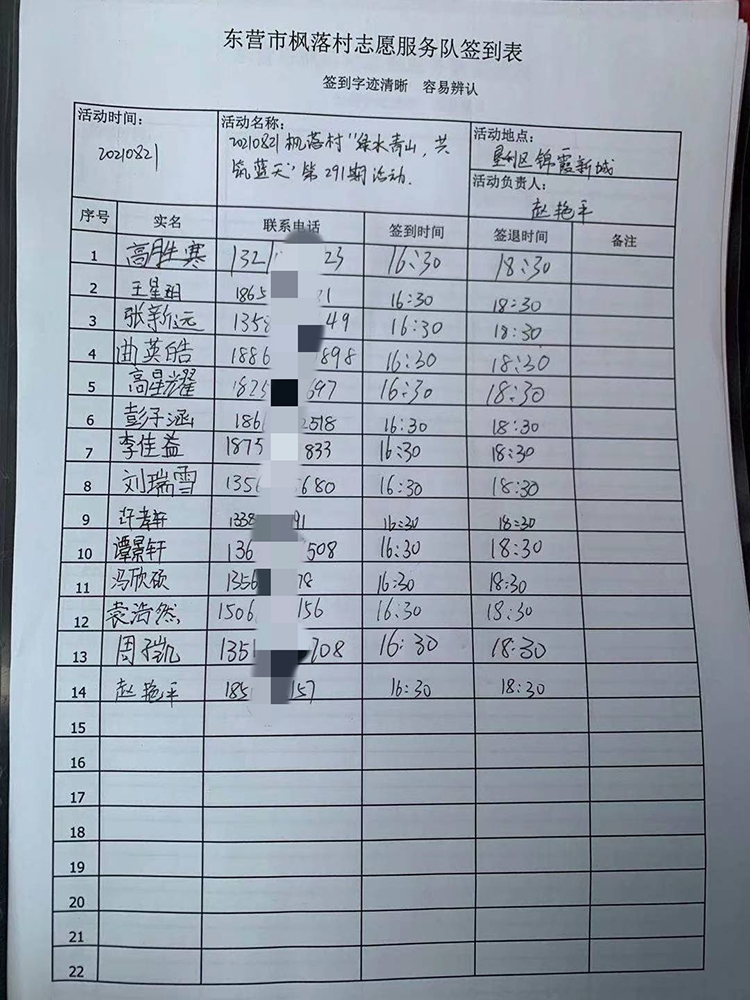 东营市枫落村志愿服务队签到表
签到字迹清晰 容易辨认
活动时间:
20210821
活动名称:
20210821枫落村"绿水青山,共
筑蓝天"第291期活动.
活动地点:
垦利区锦霞新城
活动负责人:
赵艳平
序号 实名 联系电话 签到时间 签退时间 备注
1 高胜寒 132 23 16:30 18:30
2 王星玥 1865 1 16:30 18:30
3 张新远 1358 49 16:30 18:30
4 曲英皓 1886 898 16:30 18:30
5 高星耀 1825 697 16:30 18:30
6 彭子涵 186 2518 16:30 18:30
7 李佳益 1875 833 16:30 18:30
8 刘瑞雪 1356 680 16:30 18:30
9 许孝轩 1338 91 16:30 18:30
10 谭景轩 136 508 16:30 18:30
11 冯欣硕 1356 78 16:30 18:30
12 袁浩然 1506 156 16:30 18:30
13 周子凯 1351 708 16:30 18:30
14 赵艳平 185 157 16:30 18:30
15
16
17
18
19
20
21
22